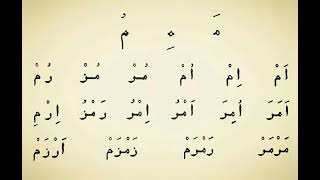 مَ مِ مُ
اَمْ اِمْ اُمْ مُرْ مُزْ رُمْ
اَمَرَ اُمِرَ اَمْرُ اِمْرُ رَمْزُ اِرْمِ
مَرْمَرَ رَمْرَمْ زَمْزَمْ اَرْزَمْ